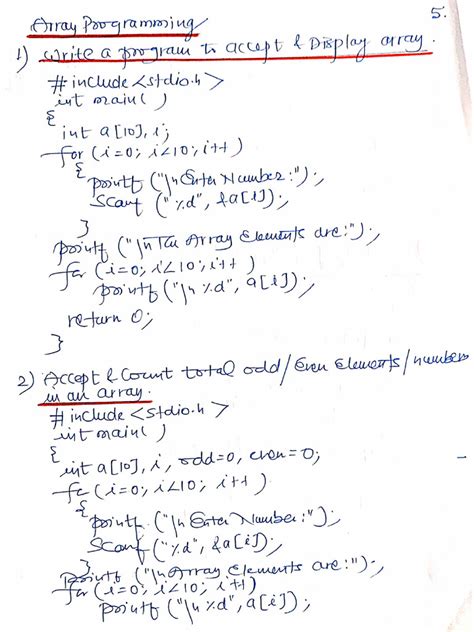 5.
Array Programming
1) Write a program to accept & Display array.
# include <stdio.h>
int main( )
{
int a[10], i;
for (i=0; i<10; i++)
{
printf ("\n Enter Number:");
scanf ("%d", &a[i]);
}
printf ("\n The Array Elements are:");
for (i=0; i<10; i++)
printf ("\n %d", a[i]);
return 0;
}
2) Accept & Count total odd/Even Elements/numbers
in an array.
# include <stdio.h>
int main( )
{
int a[10], i, odd=0, even=0;
for (i=0; i<10; i++)
{
printf ("\n Enter Number:");
scanf ("%d", &a[i]);
}
printf ("\n Array Elements are:");
for (i=0; i<10; i++)
printf ("\n %d", a[i]);